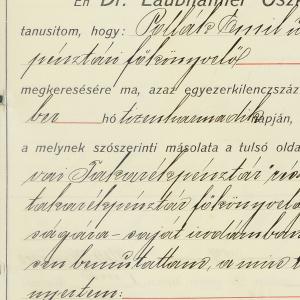 Én Dr. Laubhaimer Osz
tanusitom, hogy: Pollák Emil
pénztári főkönyvelő
megkeresésére ma, azaz egyezerkilenczszáz
ber hó tizenharmadik napján,
a melynek szószerinti másolata a tulsó olda
vári Takarékpénztár rés
takarékpénztár főkönyvelő
ságára saját irodámban
sen bemutattam, a mire
nyertem: